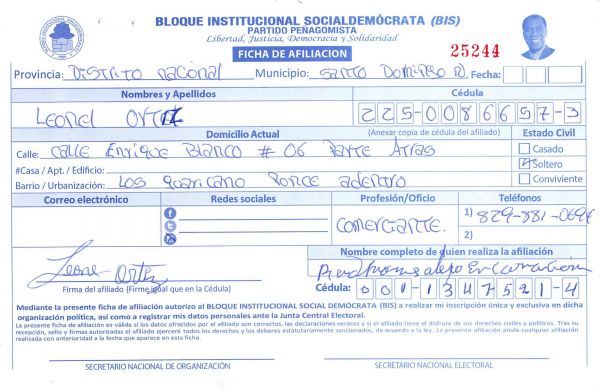 BLOQUE INSTITUCIONAL SOCIALDEMÓCRATA (BIS)
PARTIDO PEÑAGOMISTA
Libertad, Justicia, Democracia y Solidaridad
FICHA DE AFILIACION
25244
Provincia: Distrito nacional Municipio: Santo Domingo N. Fecha:
Nombres y Apellidos Cédula
Leonel Ortiz 225-0086657-3
Domicilio Actual (Anexar copia de cédula del afiliado) Estado Civil
Calle: Calle Enrique Blanco # 06 Parte Atras Casado
#Casa / Apt. / Edificio: Soltero
Barrio / Urbanización: Los guaricano Ponce adentro Conviviente
Correo electrónico Redes sociales Profesión/Oficio Teléfonos
Comerciante. 1) 829-881-0694
2)
Nombre completo de quien realiza la afiliación
Leonel Ortiz Encarnación
Firma del afiliado (Firme igual que en la Cédula) Cédula: 001-1347521-4
Mediante la presente ficha de afiliación autorizo al BLOQUE INSTITUCIONAL SOCIAL DEMÓCRATA (BIS) a realizar mi inscripción única y exclusiva en dicha
organización política, así como a registrar mis datos personales ante la Junta Central Electoral.
La presente ficha de afiliación es válida si los datos ofrecidos por el afiliado son correctos, las declaraciones veraces y si el afiliado tiene el disfrute de sus derechos civiles y políticos. Tras su
recepción, sello y firmas autorizadas el afiliado ejercerá todos los derechos y los deberes estatutariamente sancionados, de acuerdo a la ley. La presente afiliación anula cualquier afiliación
realizada con anterioridad a la fecha que aparece en esta ficha.
SECRETARIO NACIONAL DE ORGANIZACIÓN SECRETARIO NACIONAL ELECTORAL